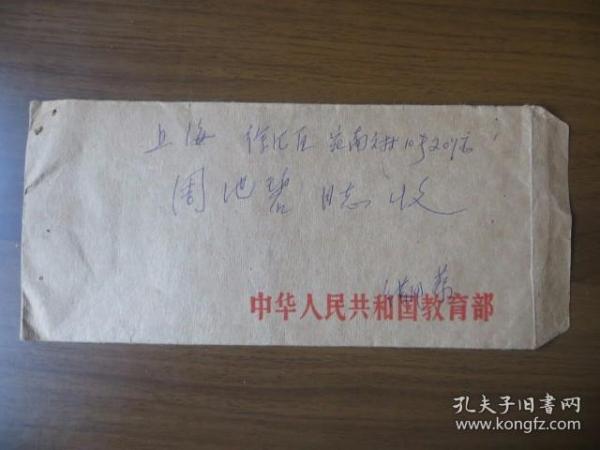 上海 徐汇区 宛南六村10号201室
周池碧 同志 收
中华人民共和国教育部
孔夫子旧书网
www.kongfz.com